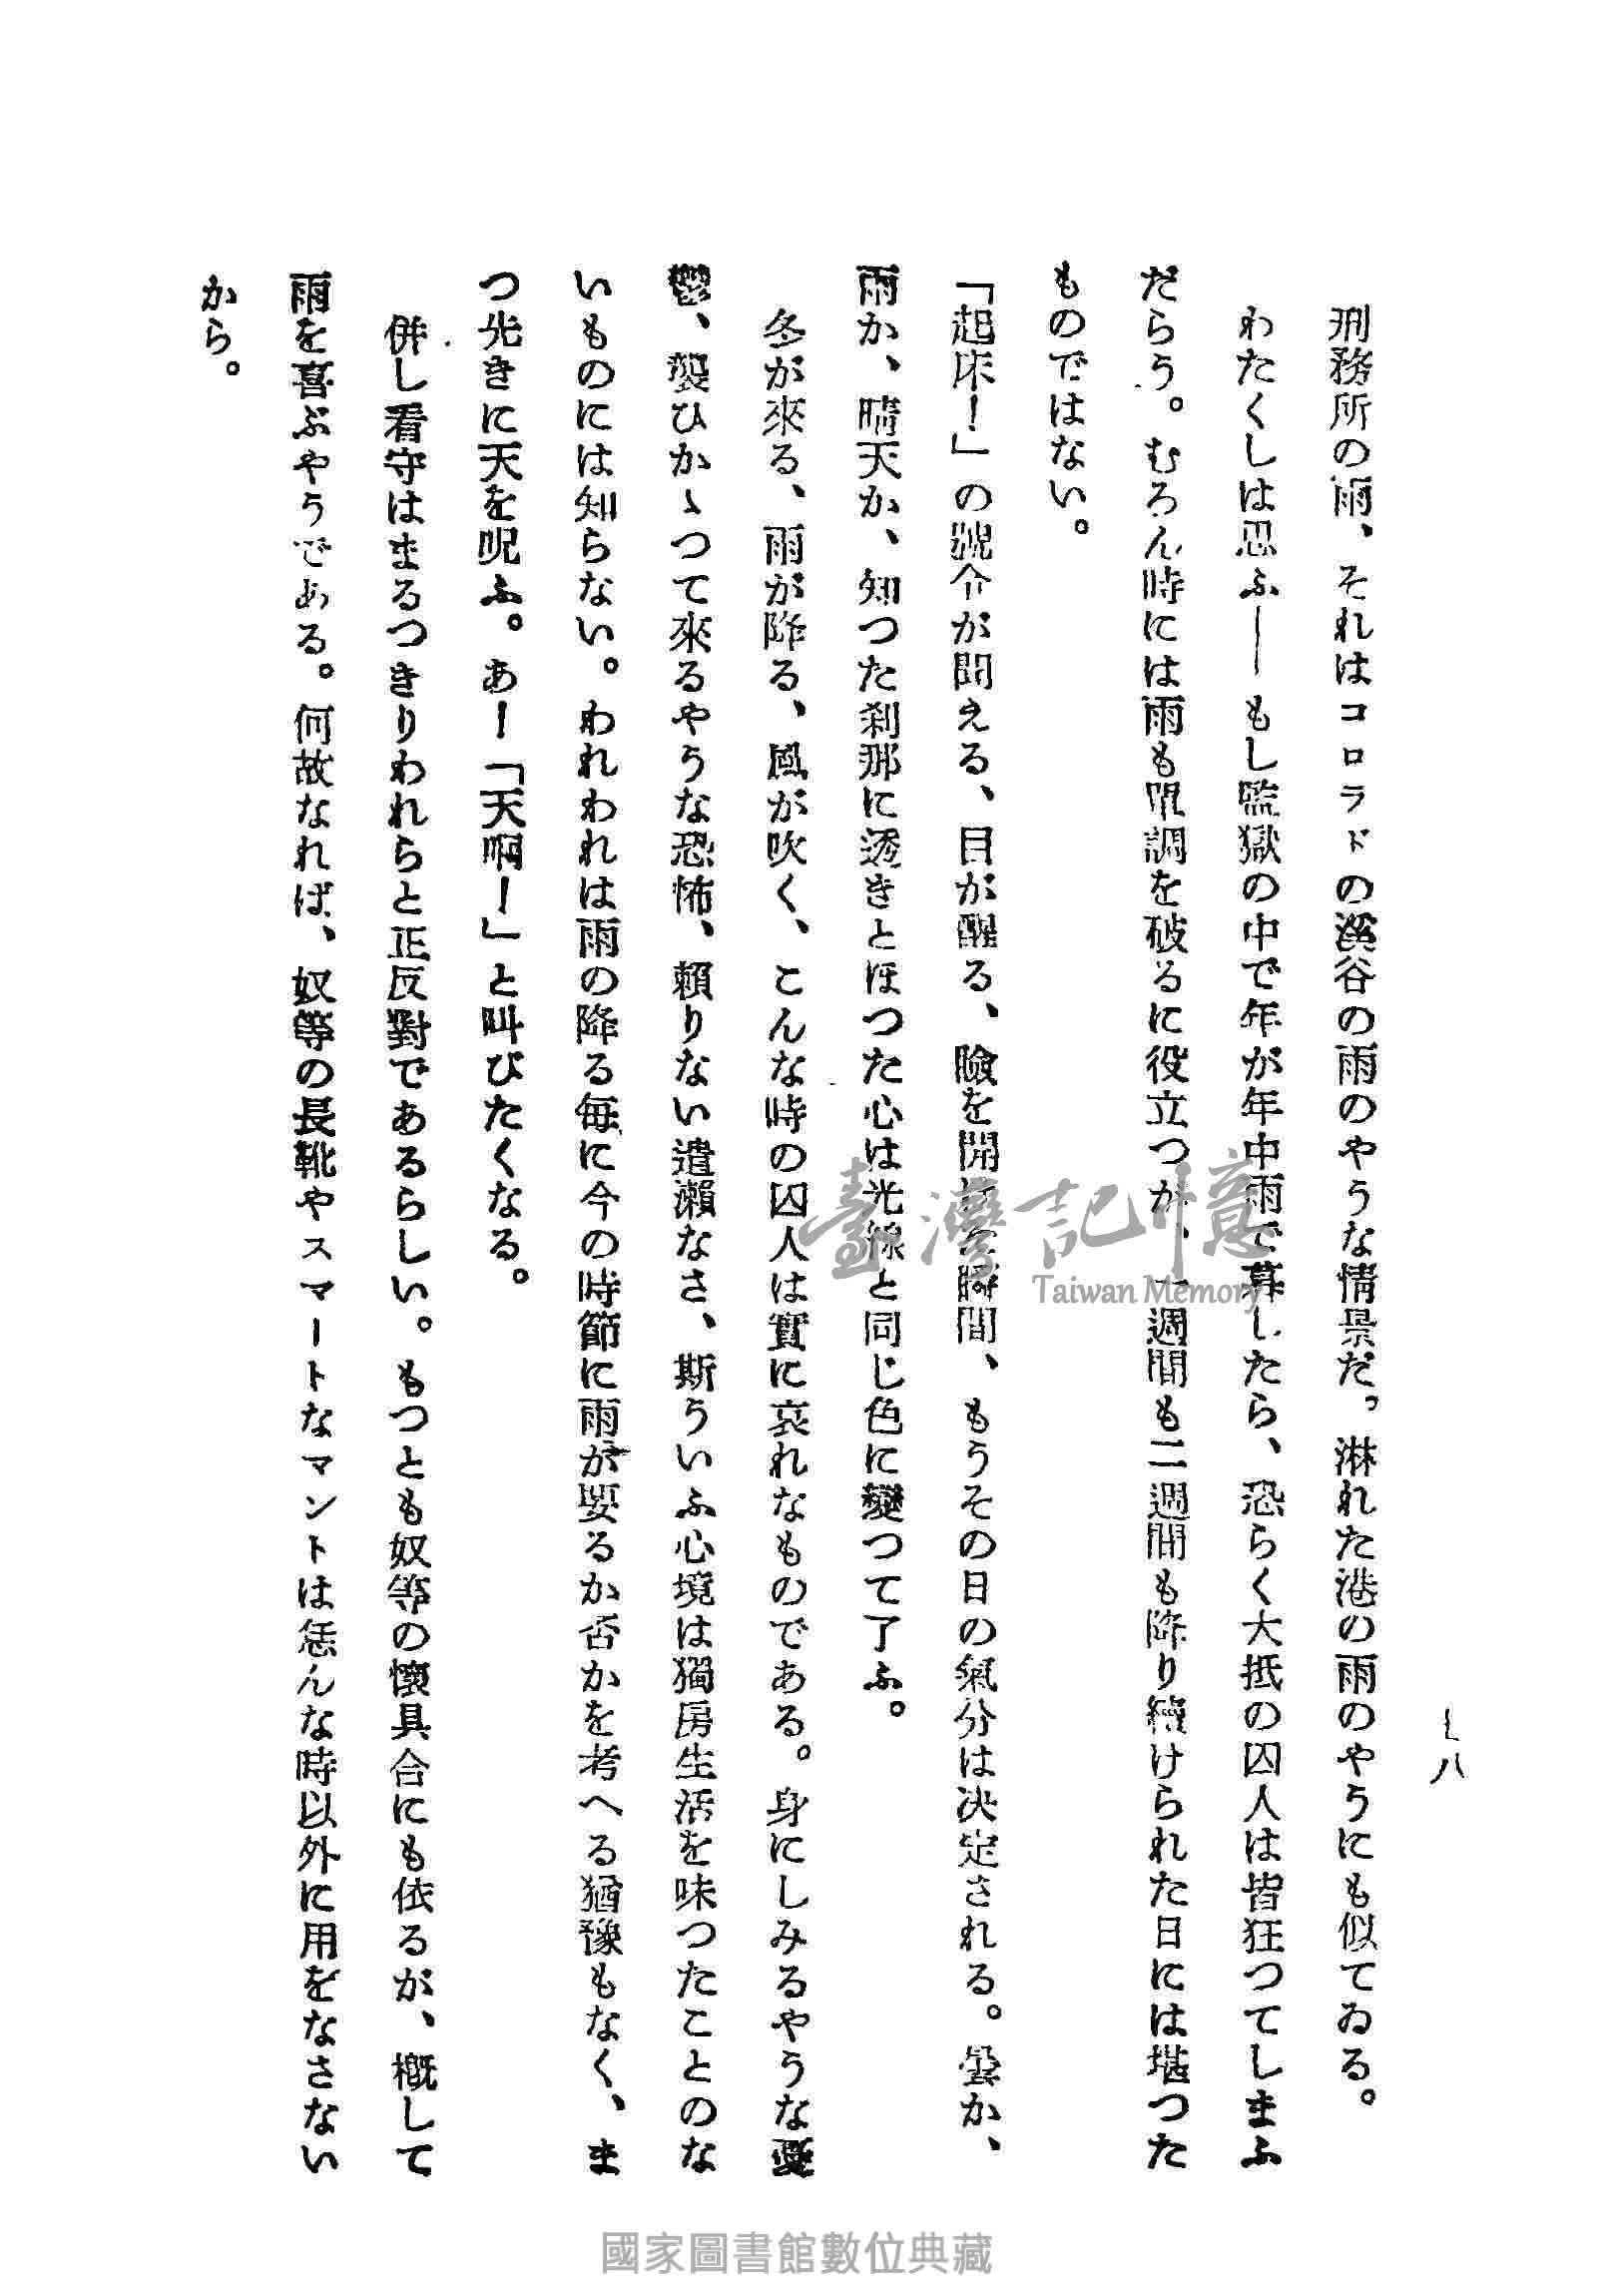 七八
刑務所の雨、それはコロラドの溪谷の雨のやうな情景だ。淋れた港の雨のやうにも似てゐる。
わたくしは思ふ——もし監獄の中で年が年中雨で暮したら、恐らく大抵の囚人は皆狂つてしまふ
だらう。むろん時には雨も單調を破るに役立つが、一週間も二週間も降り續けられた日には堪つた
ものではない。
「起床！」の號令が聞える、目が醒る、瞼を開ける瞬間、もうその日の氣分は決定される。曇か、
雨か、晴天か、知つた刹那に透きとほつた心は光線と同じ色に變つて了ふ。
冬が來る、雨が降る、風が吹く、こんな時の囚人は實に哀れなものである。身にしみるやうな憂
鬱、襲ひかゝつて來るやうな恐怖、賴りない遣瀨なさ、斯ういふ心境は獨房生活を味つたことのな
いものには知らない。われわれは雨の降る每に今の時節に雨が要るか否かを考へる猶豫もなく、ま
つ先きに天を呪ふ。あー「天啊ー」と叫びたくなる。
併し看守はまるつきりわれらと正反對であるらしい。もつとも奴等の懷具合にも依るが、槪して
雨を喜ぶやうである。何故なれば、奴等の長靴やスマートなマントは恁んな時以外に用をなさない
から。
臺灣記憶
Taiwan Memory
國家圖書館數位典藏